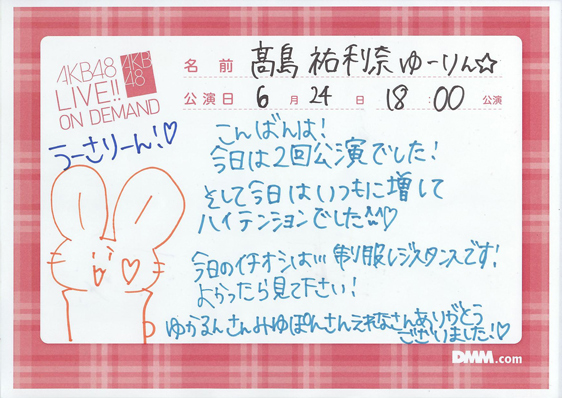 AKB48
LIVE!!
ON DEMAND
AKB
48
名前 髙島 祐利奈 ゆーりん☆
公演日 6月24日 18:00公演
うーさりーん!♡
こんばんは!
今日は2回公演でした!
そして今日はいつもに増して
ハイテンションでした^^♡
今日のイチオシは…制服レジスタンスです!
よかったら見て下さい!
ゆかるんさんみゆぽんさんえれなさんありがとう
ございました!♡
DMM.com